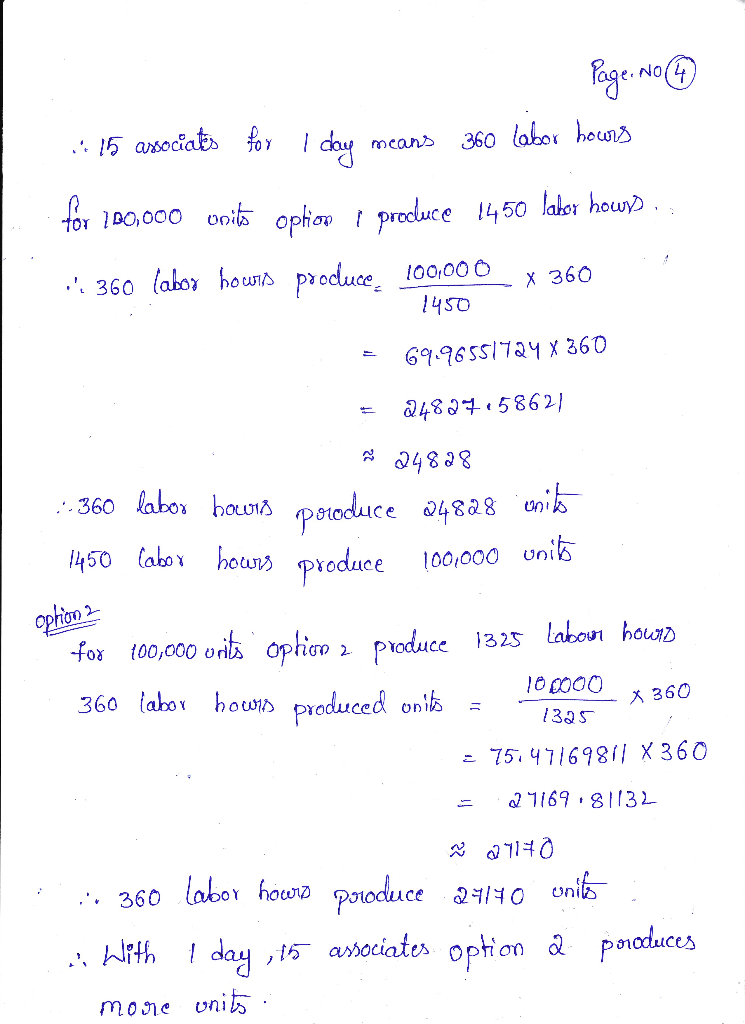 Page. No 4
∴ 15 associates for 1 day means 360 labor hours
for 100,000 units option 1 produce 1450 labor hours.
∴ 360 labor hours produce = 100,000 / 1450 × 360
= 69.96551724 × 360
= 24827.58621
≈ 24828
∴ 360 labor hours produce 24828 units
1450 labor hours produce 100,000 units
option 2
for 100,000 units option 2 produce 1325 Labour hours
360 labor hours produced units = 100000 / 1325 × 360
= 75.47169811 × 360
= 27169.81132
≈ 27170
∴ 360 labor hours produce 27170 units
∴ With 1 day, 15 associates option 2 produces
more units.